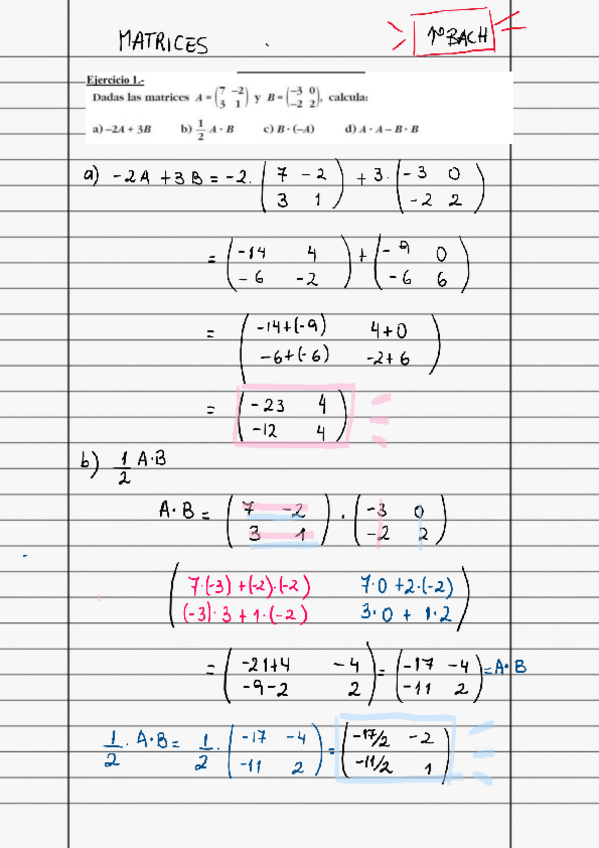 MATRICES
1º BACH
Ejercicio 1.-
Dadas las matrices A = (7 -2 / 3 1) y B = (-3 0 / -2 2), calcula:
a) -2A + 3B b) 1/2 A · B c) B · (-A) d) A · A - B · B
a) -2A + 3B = -2 · (7 -2 / 3 1) + 3 · (-3 0 / -2 2)
= (-14 4 / -6 -2) + (-9 0 / -6 6)
= (-14+(-9) 4+0 / -6+(-6) -2+6)
= (-23 4 / -12 4)
b) 1/2 A·B
A·B = (7 -2 / 3 1) · (-3 0 / -2 2)
(7·(-3)+(-2)·(-2) 7·0+2·(-2) / (-3)·3+1·(-2) 3·0+1·2)
= (-21+4 -4 / -9-2 2) = (-17 -4 / -11 2) = A·B
1/2 · A·B = 1/2 · (-17 -4 / -11 2) = (-17/2 -2 / -11/2 1)